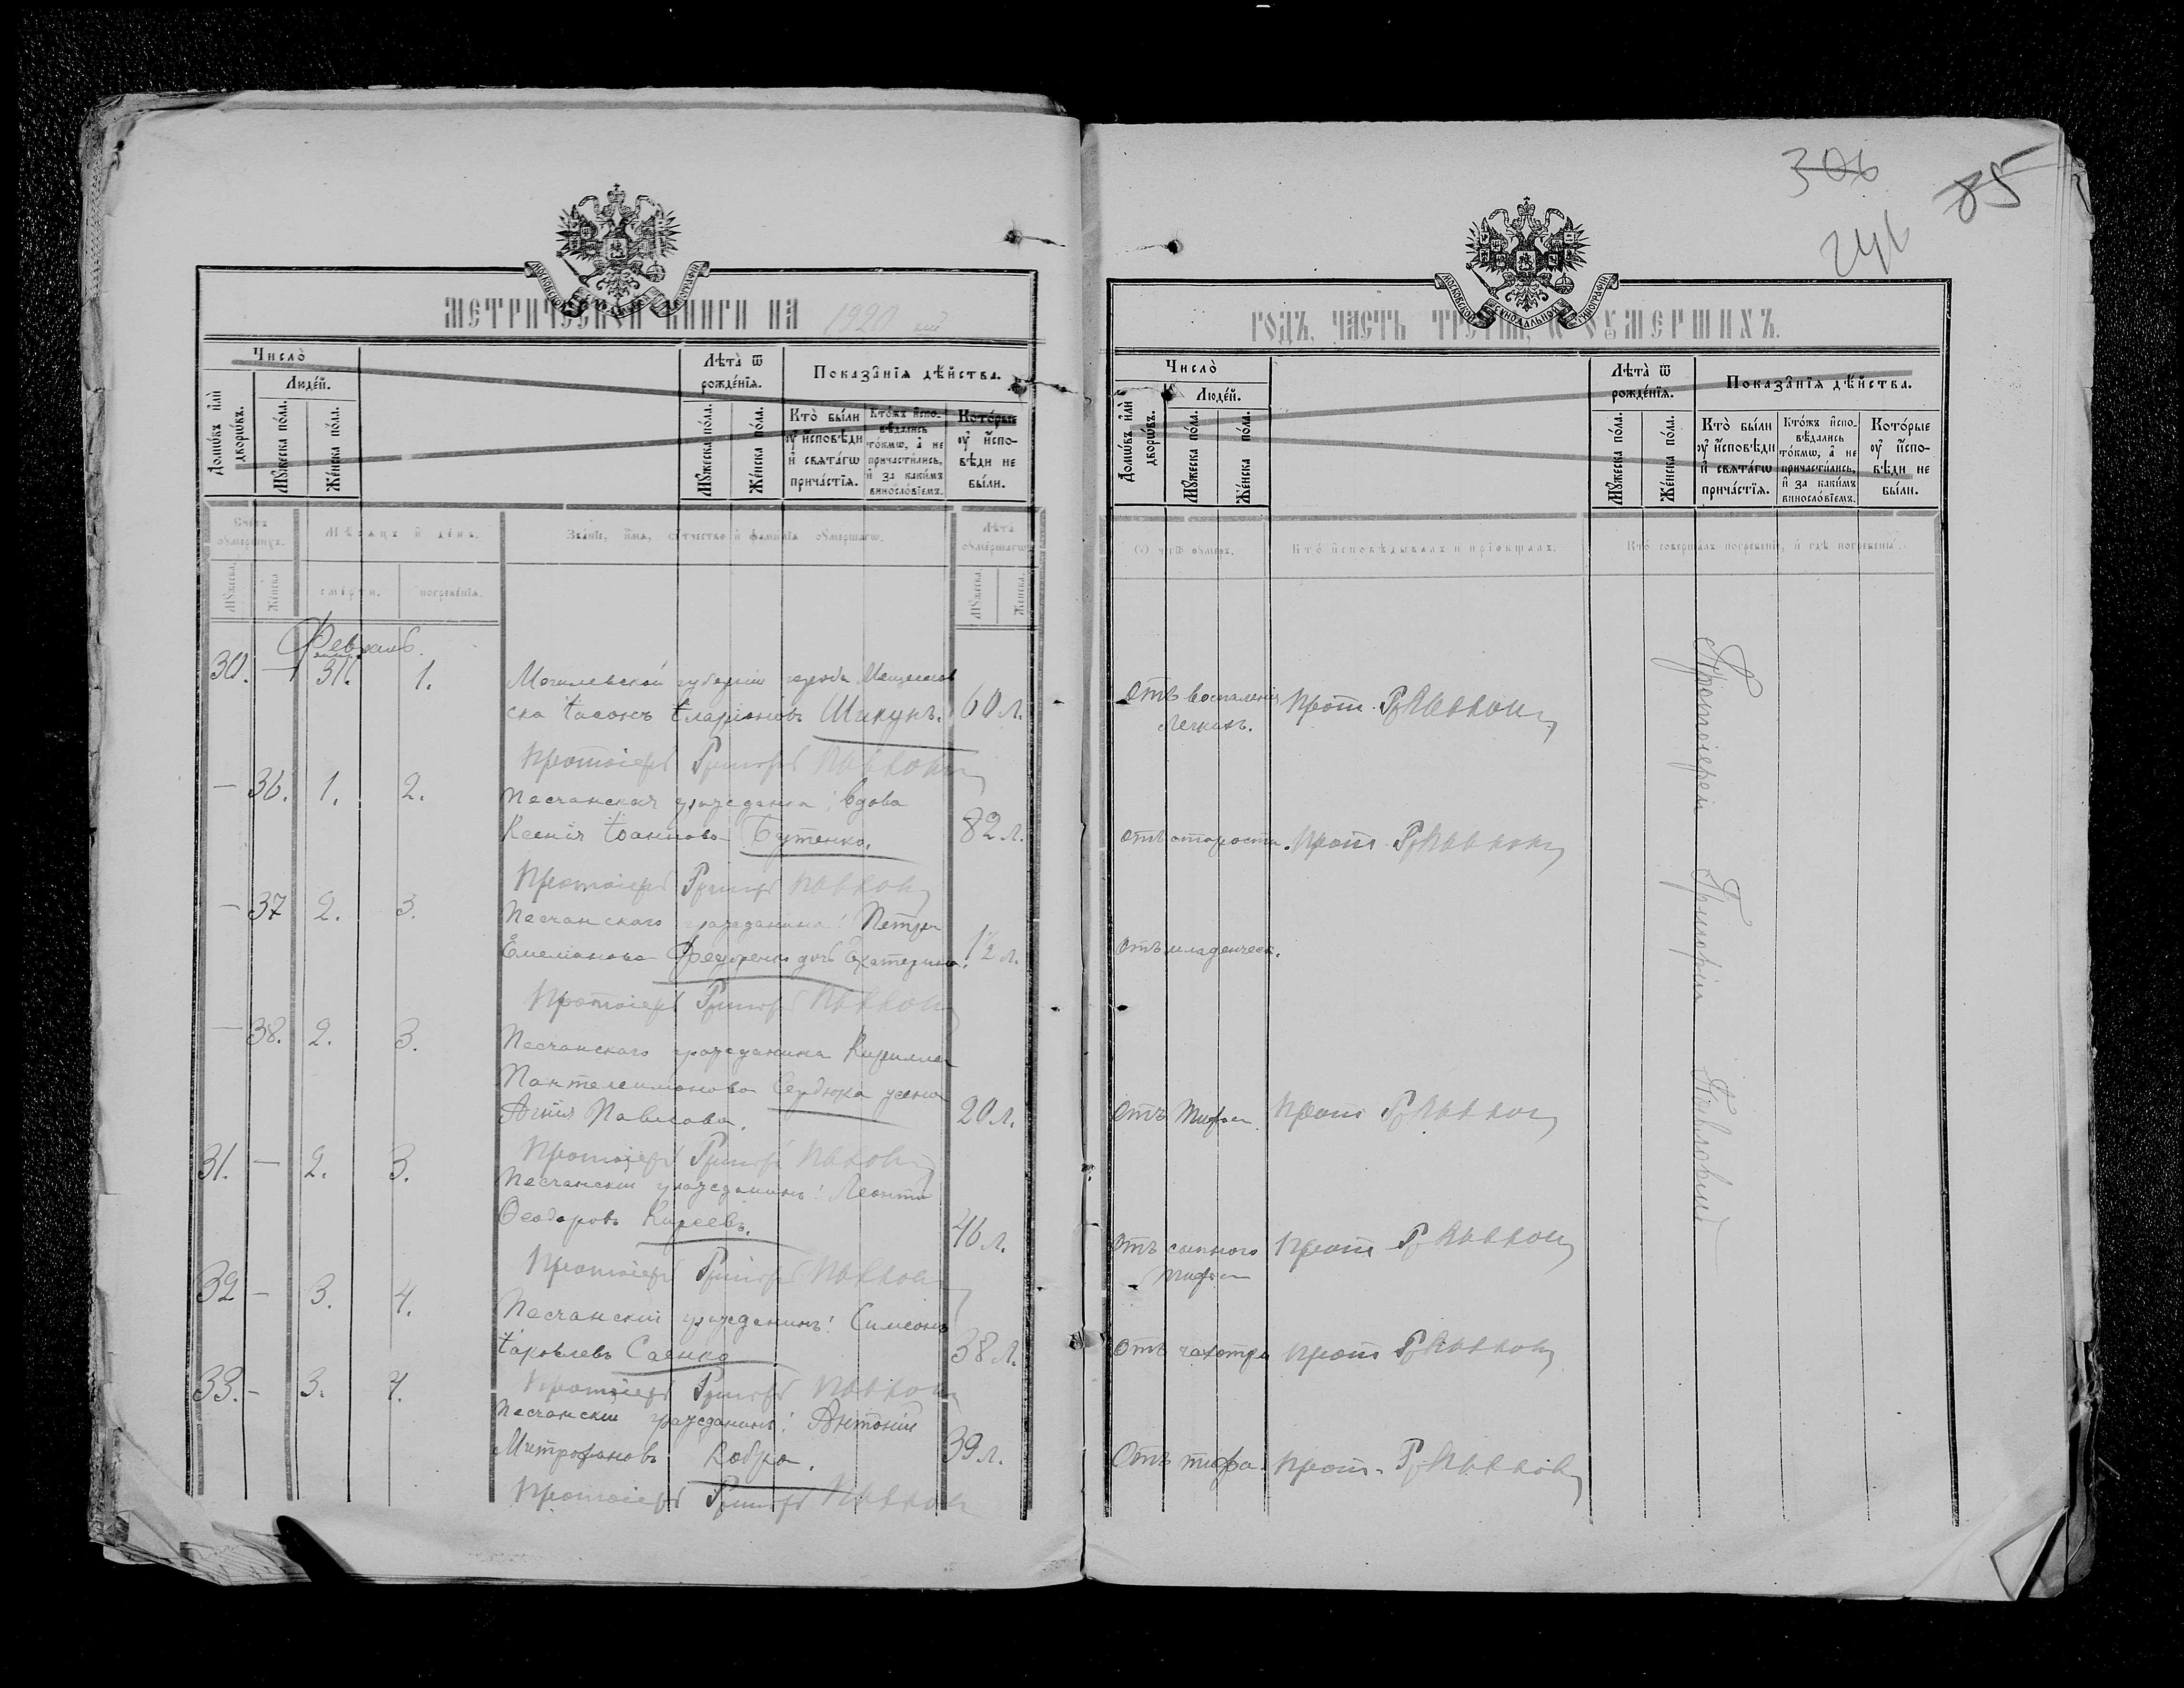 306
85
246
МОСКОВСКОЙ СѴНОДАЛЬНОЙ ТИПОГРАФІИ
МЕТРИЧЕСКОЙ КНИГИ НА 1920 ый
Число̀
Домѡ́въ и҆лѝ дворѡ́въ.
Люде́й.
Мꙋ́жеска по́ла.
Же́нска по́ла.
Лѣ́та ѿ рожде́нїѧ.
Мꙋ́жеска по́ла.
Же́нска по́ла.
Показа̑нїѧ дѣ́йства.
Кто̀ бы́ли ᲂу҆ и҆́сповѣди и҆ свѧта́гѡ прича́стїѧ.
Кто́жъ и҆спо-вѣ́дались то́кмѡ, а҆ не причасти́лись, и҆ за каки́мъ виносло́вїемъ.
Кото́рые ᲂу҆ и҆спо-вѣди не бы́ли.
Счетъ ᲂумершихъ.
Мꙋжеска.
Женска
Мѣсѧцъ и день.
смерти.
погребенїѧ.
Званїе, имѧ, отчество и фамилїѧ ᲂумершагѡ.
Лѣта ᲂумершагѡ.
Мꙋжеска.
Женска.
Февраль.
30. — 31. 1. Могилевской губерніи города
ска Іасонъ Иларіоновъ Шикунъ. 60 л.
Протоіерей Григорій Павлов
— 36. 1. 2. Песчанская гражданка: вдова
Ксенія Іоаннова Бутенко. 82 л.
Протоіерей Григорій Павлов
— 37 2. 3. Песчанскаго гражданина: Петра
Емеліанова Федоренко дочь Екатерина. 1½ л.
Протоіерей Григорій Павлов
— 38. 2. 3. Песчанскаго гражданина Кирилла
Пантелеимонова Сердюка жена
Павлова. 20 л.
Протоіерей Григорій Павлов
31. — 2. 3. Песчанскій гражданинъ: Леонтій
Ѳеодоровъ Киреевъ. 46 л.
Протоіерей Григорій Павлов
32 — 3. 4. Песчанскій гражданинъ: Симеонъ
Іаковлевъ Саенко 38 л.
Протоіерей Григорій Павлов
33. — 3. 4. Песчанскій гражданинъ: Антоній
Митрофановъ Кобра. 39 л.
Протоіерей Григорій Павлов
МОСКОВСКОЙ СѴНОДАЛЬНОЙ ТИПОГРАФІИ
ГОДЪ, ЧАСТЬ ТРЕТЇѦ, Ѡ ОУМЕРШИХЪ.
Число̀
Домѡ́въ и҆лѝ дворѡ́въ.
Люде́й.
Мꙋ́жеска по́ла.
Же́нска по́ла.
Лѣ́та ѿ рожде́нїѧ.
Мꙋ́жеска по́ла.
Же́нска по́ла.
Показа̑нїѧ дѣ́йства.
Кто̀ бы́ли ᲂу҆ и҆́сповѣди и҆ свѧта́гѡ прича́стїѧ.
Кто́жъ и҆спо-вѣ́дались то́кмѡ, а҆ не причасти́лись, и҆ за каки́мъ виносло́вїемъ.
Кото́рые ᲂу҆ и҆спо-вѣди не бы́ли.
Ѿ чегѡ ᲂумеръ.
Кто исповѣдывалъ и прїобщалъ.
Кто совершалъ погребенїе, и гдѣ погребены.
Отъ воспаленія легкихъ. Прот. Гр Павлов
Отъ старости. Прот. Гр Павлов
Отъ младенческ.
Отъ тифа. Прот. Гр Павлов
Отъ сыпного тифа Прот. Гр Павлов
Отъ чахотки Прот. Гр Павлов
Отъ тифа. Прот. Гр Павлов
Протоіерей Григорій